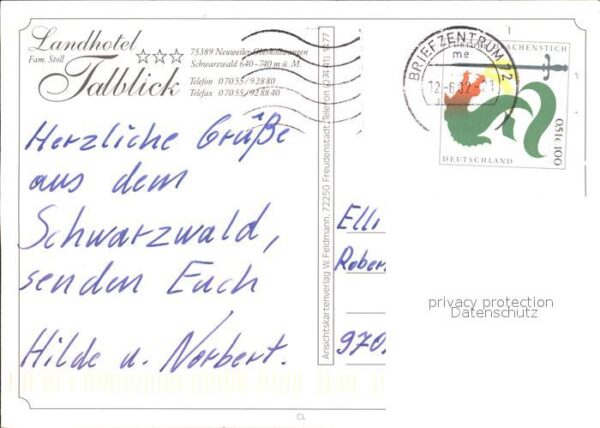 Landhotel
Fam. Stoll
Talblick
75389 Neuweiler-Oberkollwangen
Schwarzwald 640–740 m ü. M.
Telefon 07055/92880
Telefax 07055/928840
Herzliche Grüße
aus dem
Schwarzwald,
senden Euch
Hilde u. Norbert.
Ansichtskartenverlag W. Feldmann, 72250 Freudenstadt, Telefon
BRIEFZENTRUM
me
DRACHENSTICH
DEUTSCHLAND
0,51€ 100
Elli
Rober
970
privacy protection
Datenschutz
CL